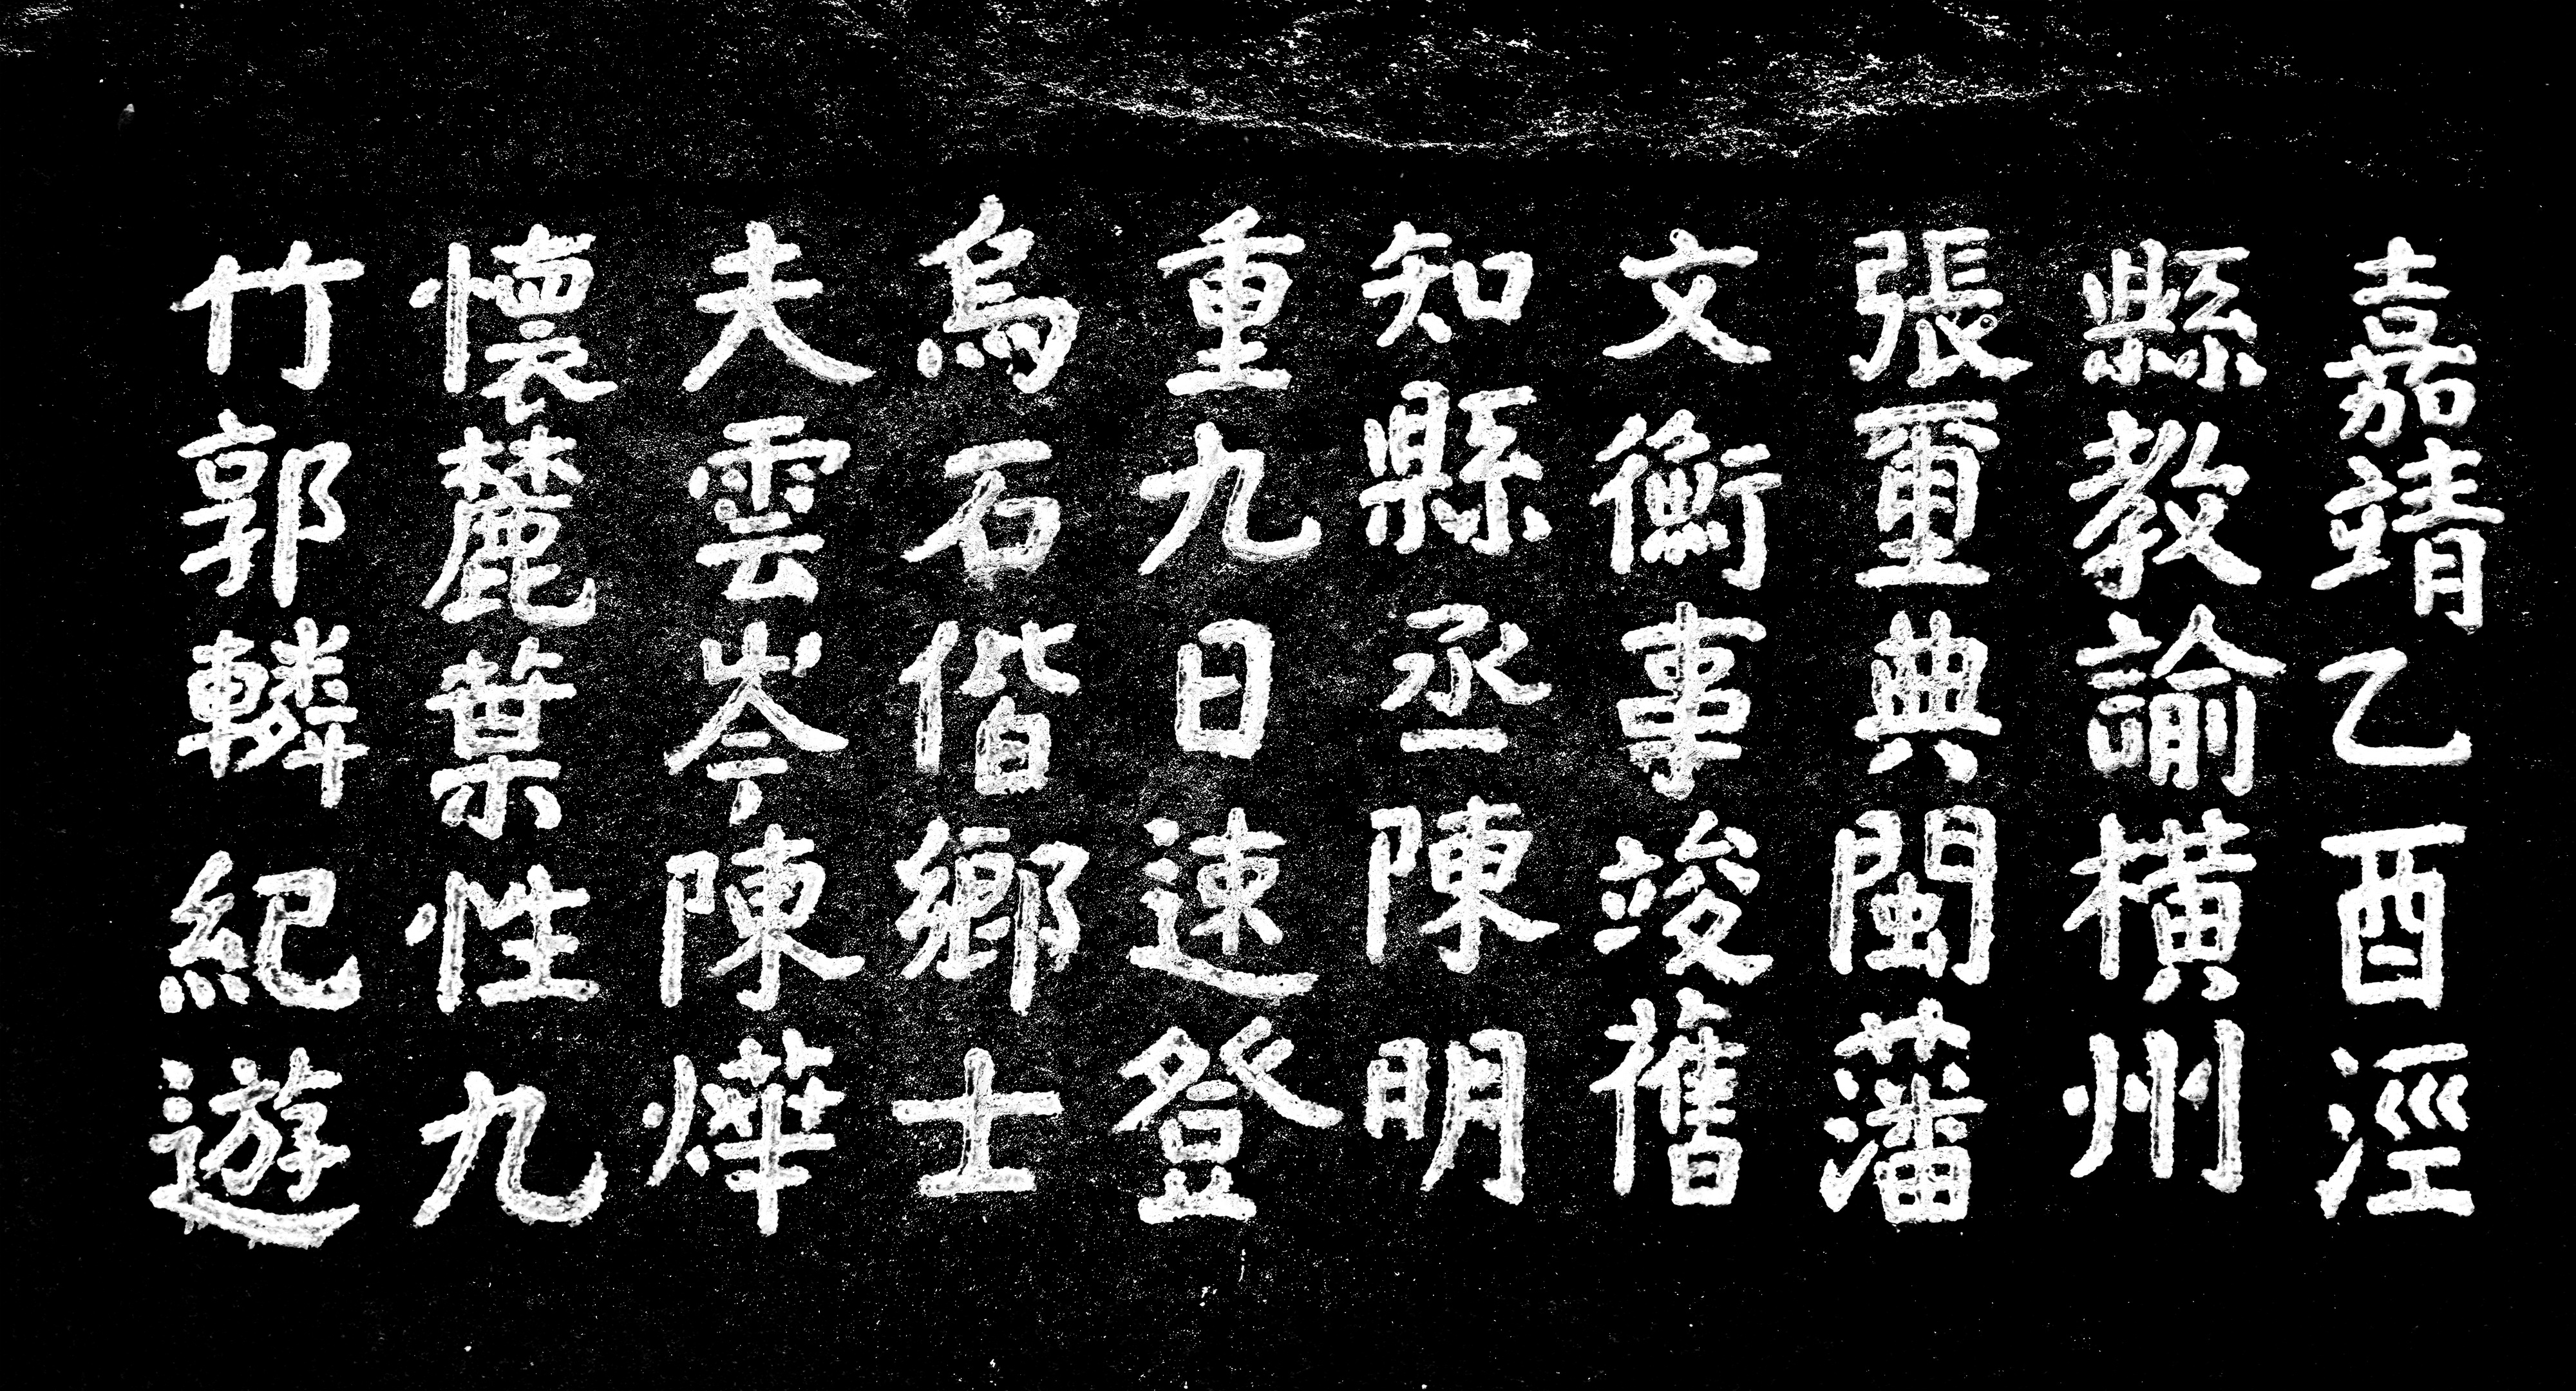 嘉靖乙酉涇
縣教諭橫州
張壐典閩藩
文衡事竣舊
知縣丞陳明
重九日速登
烏石偕鄉士
夫雲岑陳燁
懷麓葉性九
竹郭轔紀遊